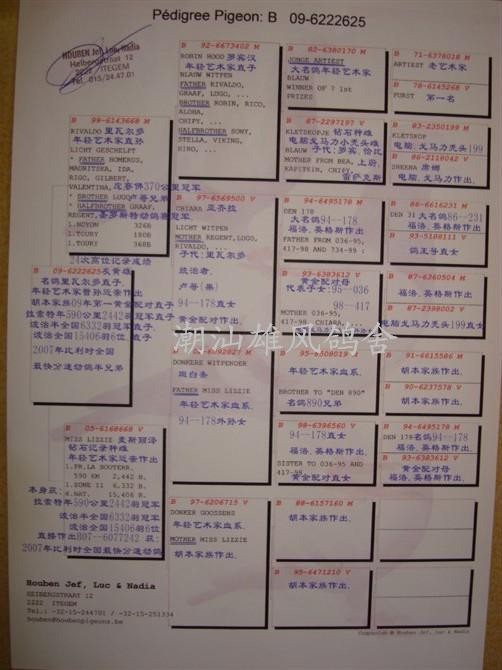 Pédigree Pigeon: B 09-6222625
HOUBEN Jef, Luc, Nadia
Heibergstraat 12
2222 ITEGEM
Tel. 015/24.47.01
B 99-6143668 M
RIVALDO 里瓦尔多
年轻艺术家直孙
LICHT GESCHELPT
* FATHER HOMERUS,
MAURITSKA, IDA,
RIGO, GILBERT,
VALENTINA,
* BROTHER LUGO
* HALFBROTHER GRAAF,
REGENT,
1.NOYON 326B
1.TOURY 180B
1.TOURY 368B
24次高位记录成绩
B 09-6222625 灰黄雄
名鸽里瓦尔多直子.
年轻艺术家曾孙近亲作出
胡本家族09年第一黄金配对直子
拉索特年590公里2442羽冠军直子
波治半全国6332羽冠军直子
波治全国15406羽6位直子
2007年比利时全国
最快分速鸽半兄弟
B 05-6168668 V
MISS LIZZIE 麦斯丽泽
钻石记录种雌
年轻艺术家近亲作出
1.PR.LA SOUTERR.
590 KM 2,442 B.
1.ZONE II 6,332 B.
6.NAT. 15,406 B.
本身获:
拉索特年590公里2442羽冠军
波治半全国6332羽冠军
波治全国15406羽6位
直接作出B07--6077242 获:
2007年比利时全国最快分速动鸽
B 92-6673402 M
ROBIN HOOD 罗宾汉
年轻艺术家直子
BLAUW WITPEN
FATHER RIVALDO,
GRAAF, LUGO, ...
* BROTHER ROBIN, RICO,
ALOHA,
CHIPY, ...
* HALFBROTHER SONY,
STELLA, VIKING,
HIRO, ...
B 97-6569500 V
CHIARA 亚齐拉
LICHT WITPEN
MOTHER REGENT,LUGO,
RIVALDO, ...
子代: 里瓦尔多
统治者.
卢哥(弟)
94---178直女
DONKERE WITPENDER
雨白条
FATHER MISS LIZZIE
年轻艺术家血系.
94---178外孙
B 97-6206715 V
DONKER GOOSSENS
年轻艺术家血系.
MOTHER MISS LIZZIE
胡本家族作出.
B 82-6380170 M
JONGE ARTIEST
大名鸽年轻艺术家
BLAUW
WINNER OF 7 1st
PRIZES
B 87-2297197 V
KLETSKOPJE 钻石种雌
电脑戈马力小秃头雌
BLAUW 子代: 罗宾, 伦比
MOTHER FROM BEA, 上尉
KAPITEIN, CHIPY,
雷萨克斯
B 94-6495178 M
DEN 178
大名鸽94---178
福洛, 英格斯作出
FATHER FROM 036-95,
417-98 AND 734-99 :
B 93-6383612 V
黄金配对母
代表子女: 95---036
98---417
MOTHER 036-95,
417-98, CHIARA, ...
B 95-6508019 M
年轻艺术家血系.
BROTHER TO "DEN 890"
名鸽890兄弟
B 98-6396560 V
94---178直女
福洛, 英格斯作出.
SISTER TO 036-95 AND
417-98
B 88-6157160 M
胡本家族作出.
B 95-6471210 V
胡本家族作出.
B 71-6376018 M
ARTIEST 老艺术家
B 78-6145268 V
FURST 第一名
B 83-2350199 M
KLETSKOP
电脑. 戈马力秃头199
B 86-2118042 V
SHEENA 席娜
电脑. 戈马力作出
B 86-6616231 M
DEN 31 大名鸽86---231
福洛. 英格斯作出
B 93-5188111 V
鸽王号直女
B 87-6260504 M
福洛. 英格斯作出
B 87-2399002 V
电脑戈马力秃头199直女
B 91-6615586 M
胡本家族作出.
B 90-6237578 V
胡本家族作出.
B 94-6495178 M
DEN 178名鸽94---178
福洛, 英格斯作出.
B 93-6383612 V
黄金配对母
福洛. 英格斯作出.
潮汕雄风鸽舍
Houben Jef, Luc & Nadia
HEIBERGSTRAAT 12
2222 ITEGEM
Tel.: -32-15-244701 / -32-15-251334
houben@houbenpigeons.be
Compuclub © Houben Jef, Luc & Nadia